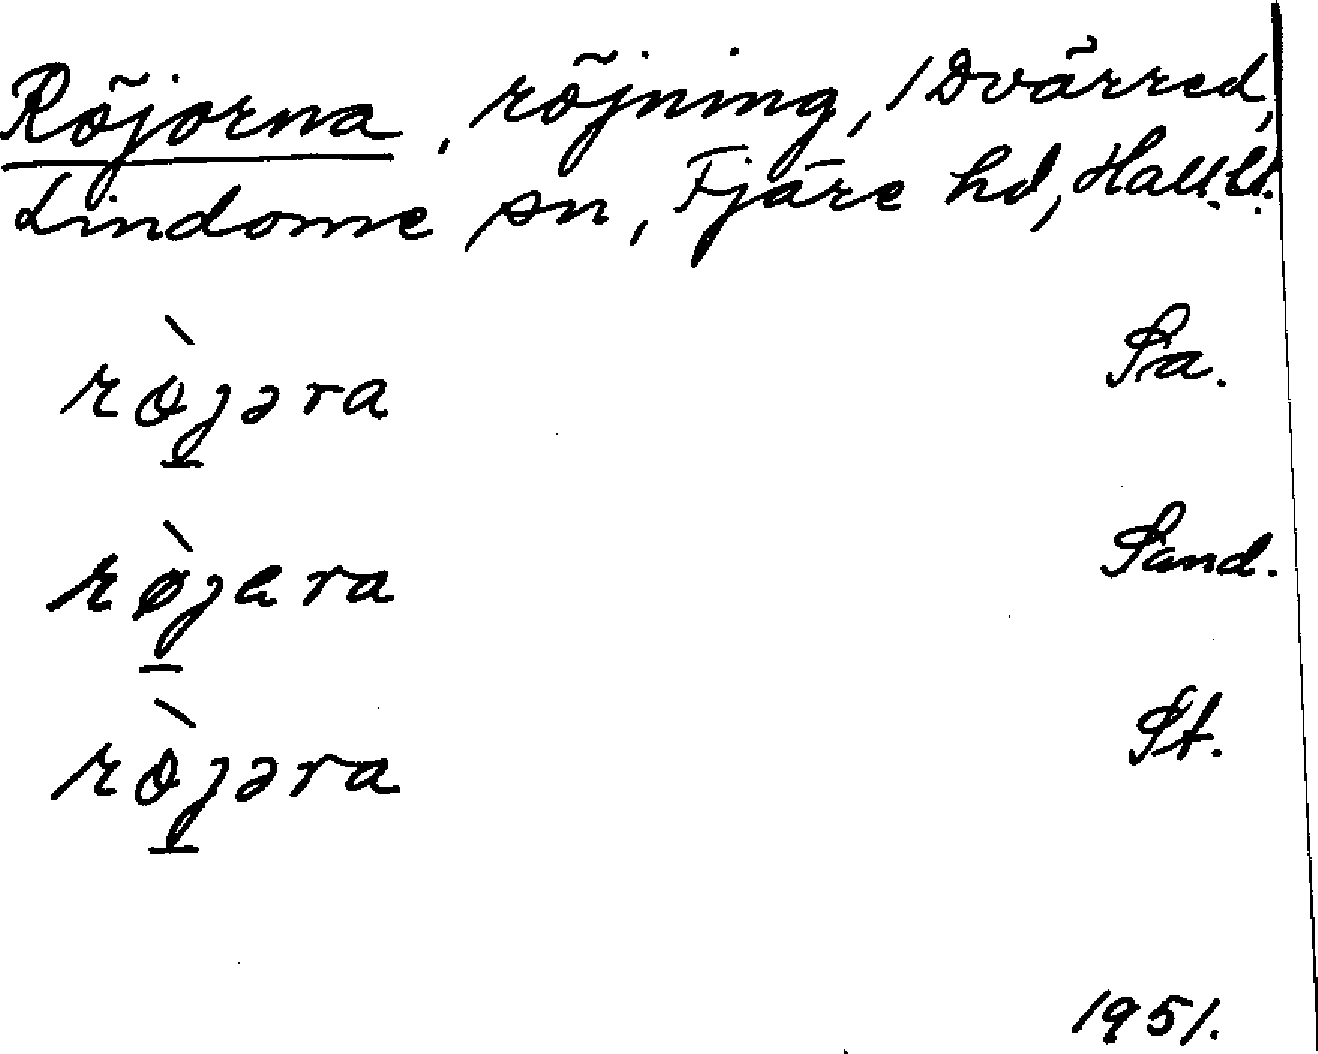 Röjorna, röjning, 1 Dvärred,
Lindome sn, Fjäre hd, Hall. l.
rø̀jəra Sa.
rø̀jera Sand.
rø̀jəra St.
1951.